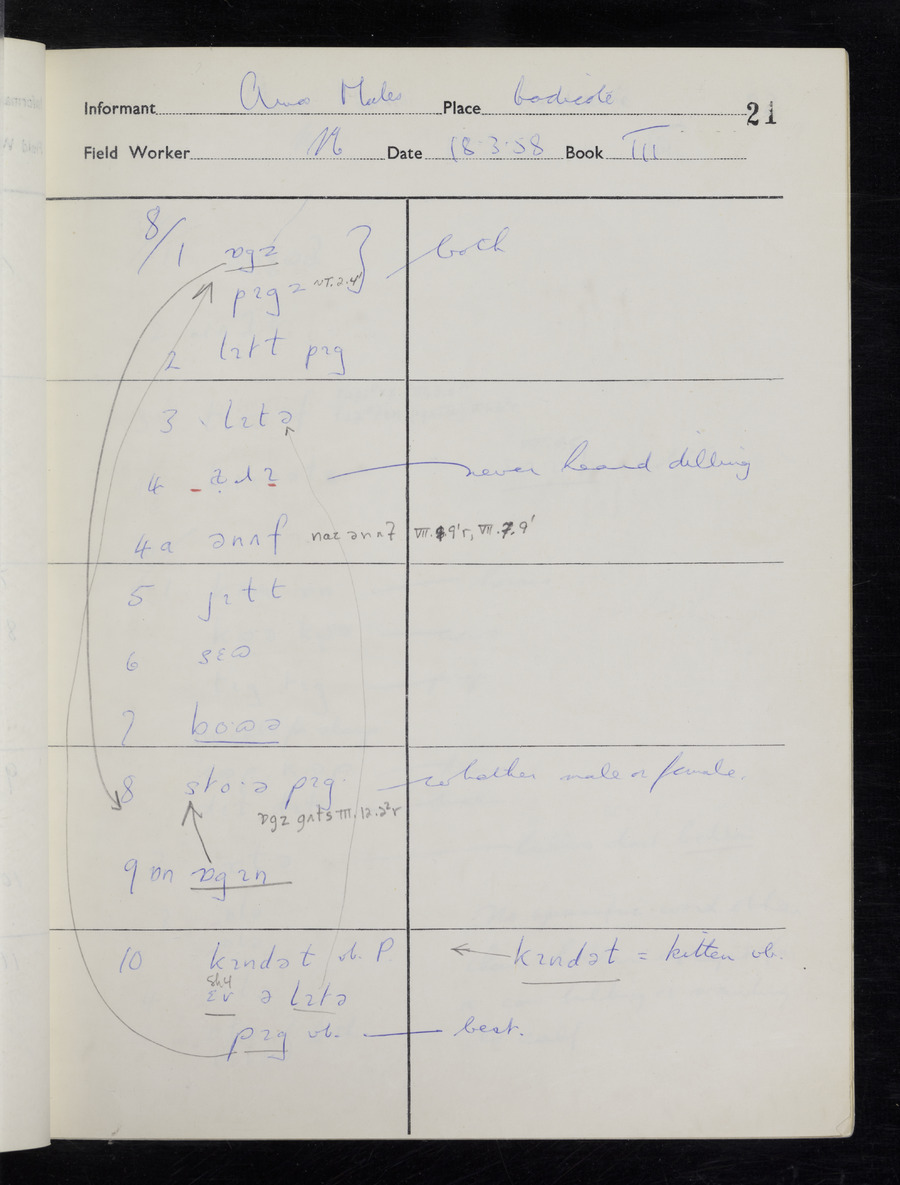 Informant Amos Males Place bodicote 21
Field Worker Date 18·3·58 Book III
8/1 ɒgz } both
pɪgz NT. 2. 4'
2 lɪtt pɪg
3 lɪtə
4 never heard dilling
4a ənʌf VII. 7. 9'
5 jɪtt
6
7 bo:ə
8 sto·ə pɪg. whether male or female.
ɒgz gʌts III. 12. 2²r
9 an ɒgɪn
10 kɪndət vb. P. ← kɪndət = kitten vb.
8h4
ɛv ə lɪtə
pɪg vb. best.